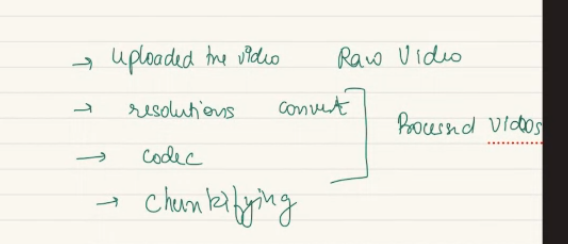 → Uploaded the video Raw Video
→ resolutions convert
Processed videos
→ codec
→ chunkifying